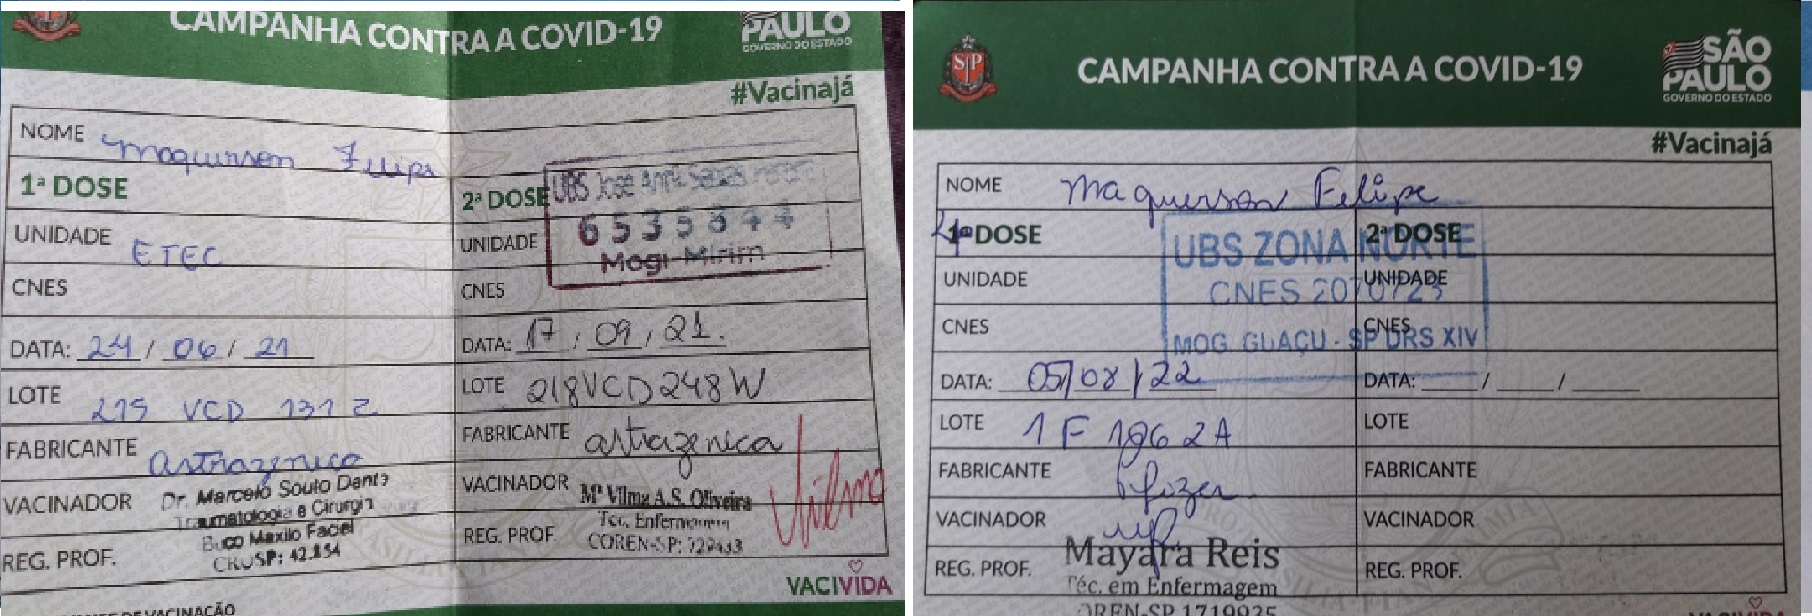 CAMPANHA CONTRA A COVID-19
PAULO
GOVERNO DO ESTADO
#Vacinajá
NOME Maquerson Felipe
1ª DOSE
2ª DOSE
UBS José
6535844
Mogi-Mirim
UNIDADE ETEC
UNIDADE
CNES
CNES
DATA: 24 / 06 / 21
DATA: 17 / 09 / 21.
LOTE 215 VCD 131 Z
LOTE 218VCD248W
FABRICANTE astrazenica
FABRICANTE astrazenica
VACINADOR Dr. Marcelo Souto Dantas
Traumatologia e Cirurgia
Buco Maxilo Facial
CROSP: 42.854
VACINADOR Mª Vilma A.S. Oliveira
Téc. Enfermagem
COREN-SP: 729433
Vilma
REG. PROF.
REG. PROF.
VACIVIDA
DE VACINAÇÃO
SP
CAMPANHA CONTRA A COVID-19
SÃO
PAULO
GOVERNO DO ESTADO
#Vacinajá
NOME Maquerson Felipe
1ª DOSE
2ª DOSE
UBS ZONA NORTE
CNES 2070723
MOG. GUAÇU - SP DRS XIV
UNIDADE
UNIDADE
CNES
CNES
DATA: 05/08/22
DATA: ____ / ____ / ____
LOTE 1F1062A
LOTE
FABRICANTE Pfizer
FABRICANTE
VACINADOR
VACINADOR
Mayara Reis
Téc. em Enfermagem
COREN-SP 1719925
REG. PROF.
REG. PROF.